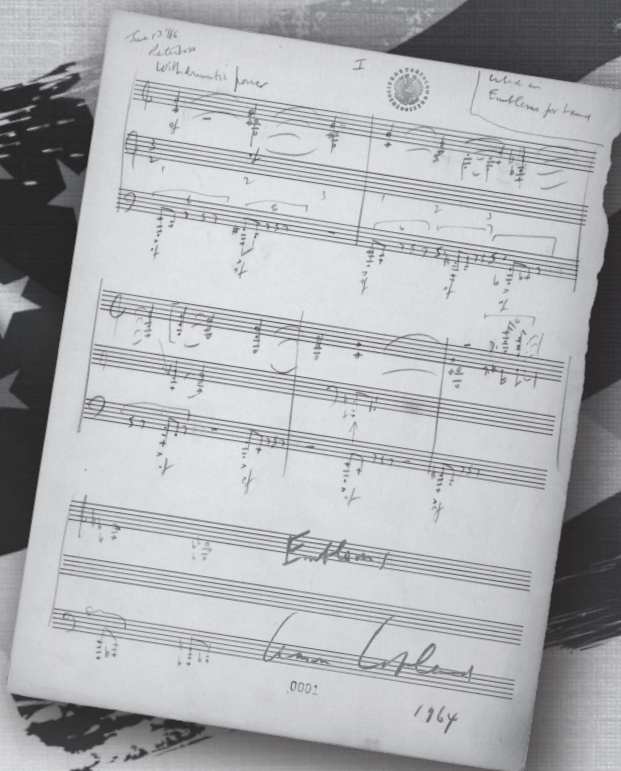 With dramatic power
I
Used in
Emblems for band
1 2 3 1 2 3
6 6 6
Emblems
Aaron Copland
.0001
1964